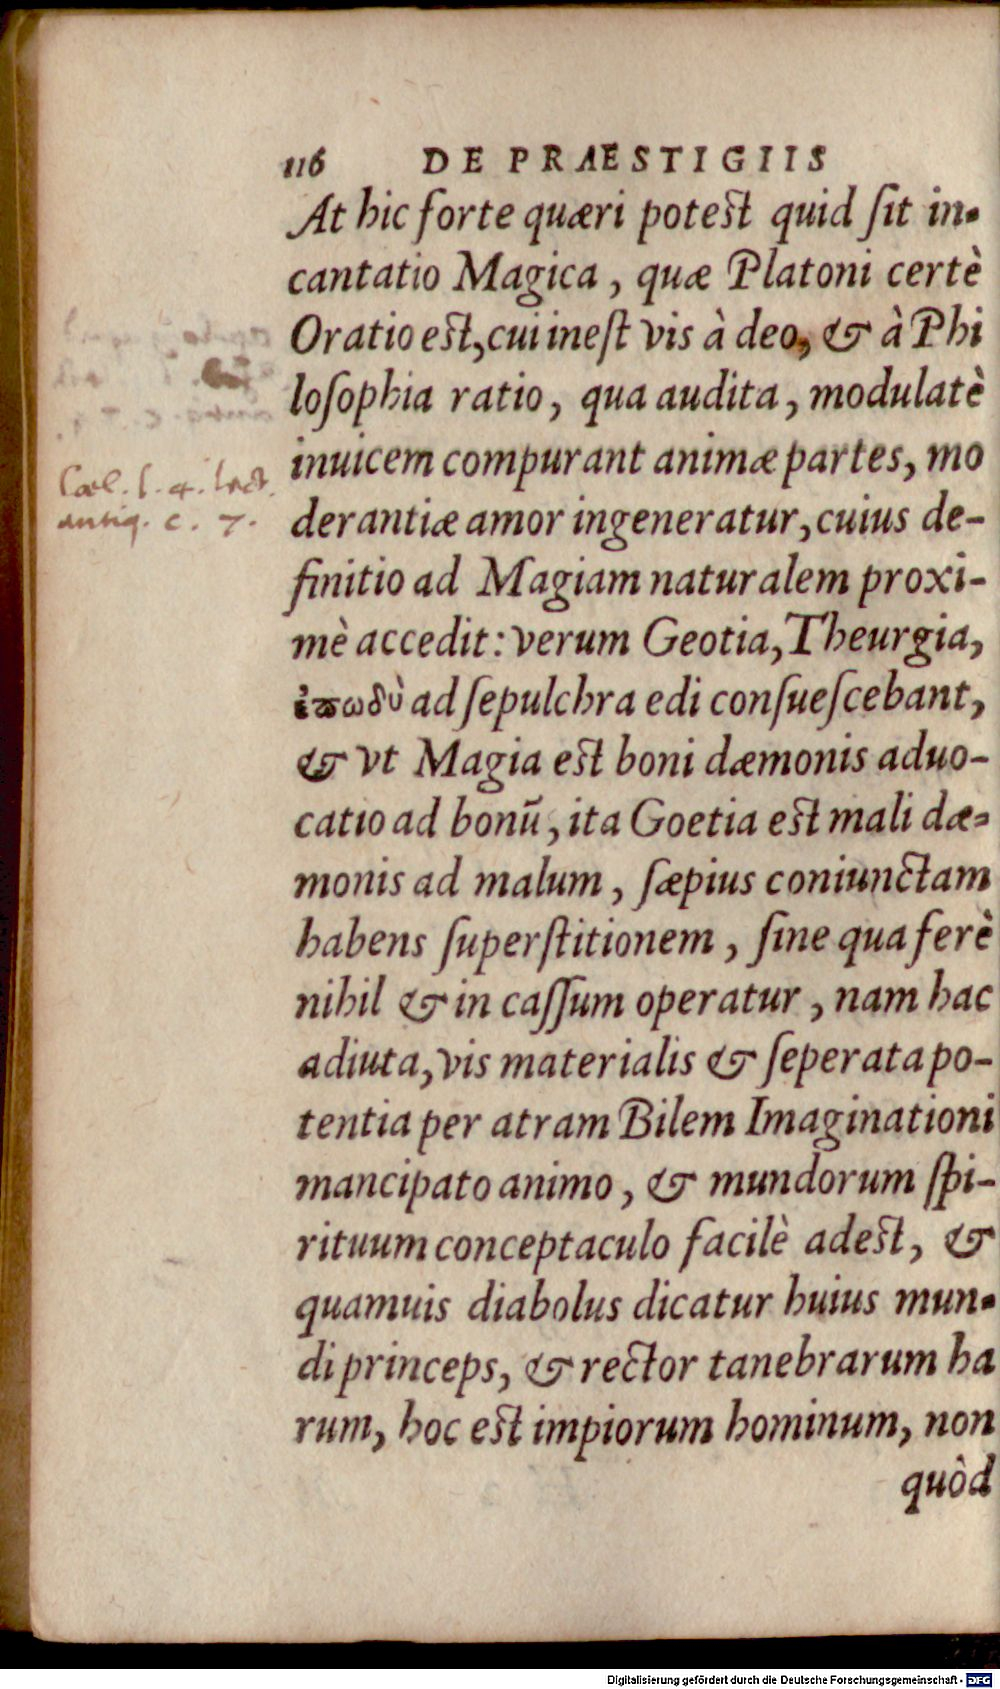 116 DE PRÆSTIGIIS
At hic forte quæri potest quid ſit in-
cantatio Magica, quæ Platoni certè
Oratio est, cui ineſt vis à deo, & à Phi
loſophia ratio, qua audita, modulatè
inuicem compurant animæ partes, mo
derantiæ amor ingeneratur, cuius de-
finitio ad Magiam naturalem proxi-
mè accedit: verum Geotia, Theurgia,
ἐπωδὺ ad ſepulchra edi conſueſcebant,
& vt Magia est boni dæmonis aduo-
catio ad bonū, ita Goetia est mali dæ-
monis ad malum, ſæpius coniunctam
habens ſuperſtitionem, ſine qua ferè
nihil & in caſſum operatur, nam hac
adiuta, vis materialis & ſeperata po-
tentia per atram Bilem Imaginationi
mancipato animo, & mundorum ſpi-
rituum conceptaculo facilè adest, &
quamuis diabolus dicatur huius mun-
di princeps, & rector tanebrarum ha
rum, hoc est impiorum hominum, non
quòd
Cael. l. 4. lect.
antiq. c. 7.
Digitalisierung gefördert durch die Deutsche Forschungsgemeinschaft - DFG